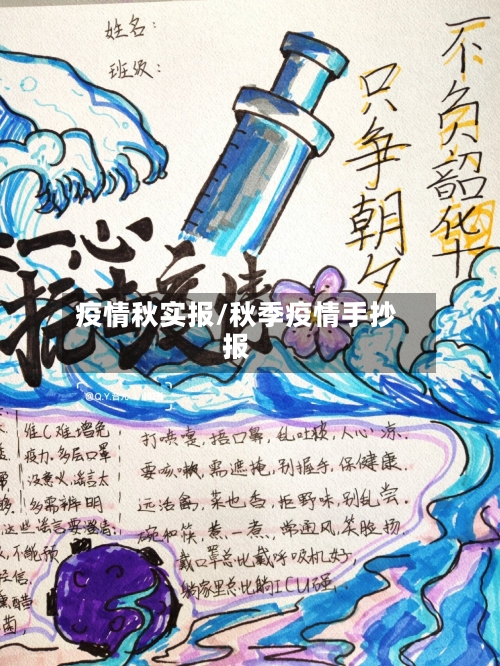 姓名：
班级：
不负韶华
只争朝夕
一心
抗疫情
疫情秋实报/秋季疫情手抄
报
维C难增免
疫力,多层口罩
没意义,谣言太
多需辨明
打喷嚏,捂口鼻,乱吐痰,人心凉.
要咳嗽,需遮掩,别握手,保健康.
远活禽,菜也香,拒野味,别乱尝.
碗和筷,煮一煮,常通风,笑脸扬.
戴口罩总比戴呼吸机好,
躺家里总比躺ICU强.